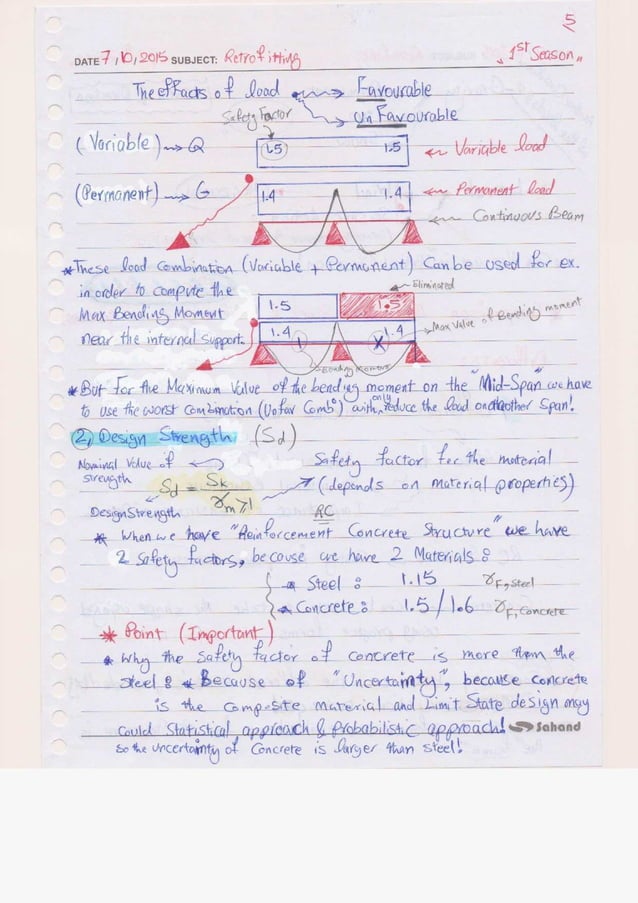 5
DATE 7, 10, 2015 SUBJECT: Retrofitting 1st Season
The effects of load Favourable
UnFavourable
Safety Factor
(Variable) Q 1.5 1.5 Variable load
(Permanent) G 1.4 1.4 Permanent load
Continuous Beam
These load combination (Variable + Permanent) Can be used for ex.
Eliminated
in order to compute the
Max Bending Moment 1.5 1.5
near the internal support. 1.4 1.4 Max Value of Bending moment
Bending moment
But for the Maximum Value of the bending moment on the "Mid-Span" we have
to use the worst combination (Unfav Comb°) with only reduce the load on the other Span!
2) Design Strength (Sd)
Nominal Value of Safety factor for the material
strength Sd = Sk / γm ≥ 1 (depends on material properties)
Design Strength
RC
When we have "Reinforcement Concrete Structure" we have
2 Safety factors, because we have 2 Materials :
Steel : 1.15 γF, Steel
Concrete : 1.5 / 1.6 γF, Concrete
Point (Important)
Why the Safety factor of concrete is more than the
steel : Because of "Uncertainty", because concrete
is the composite material and Limit State design may
could Statistical approach & Probabilistic approach! Sahand
So the uncertainty of Concrete is larger than steel!